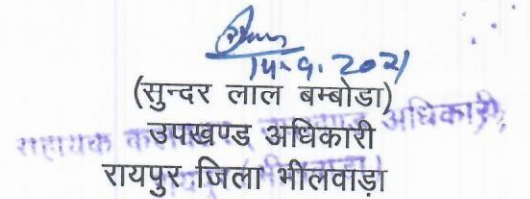 14.9.2021
(सुन्दर लाल बम्बोडा)
उपखण्ड अधिकारी
अधिकारी,
रायपुर जिला भीलवाडा